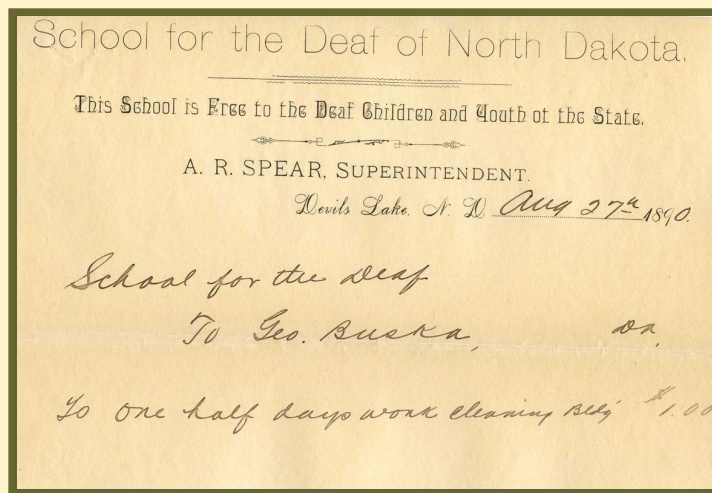 School for the Deaf of North Dakota.
This School is Free to the Deaf Children and Youth of the State.
A. R. SPEAR, SUPERINTENDENT.
Devils Lake, N. D. Aug 27th 1890.
School for the Deaf
To Geo. Buska, Dr.
To one half days work cleaning Bldg $1.00